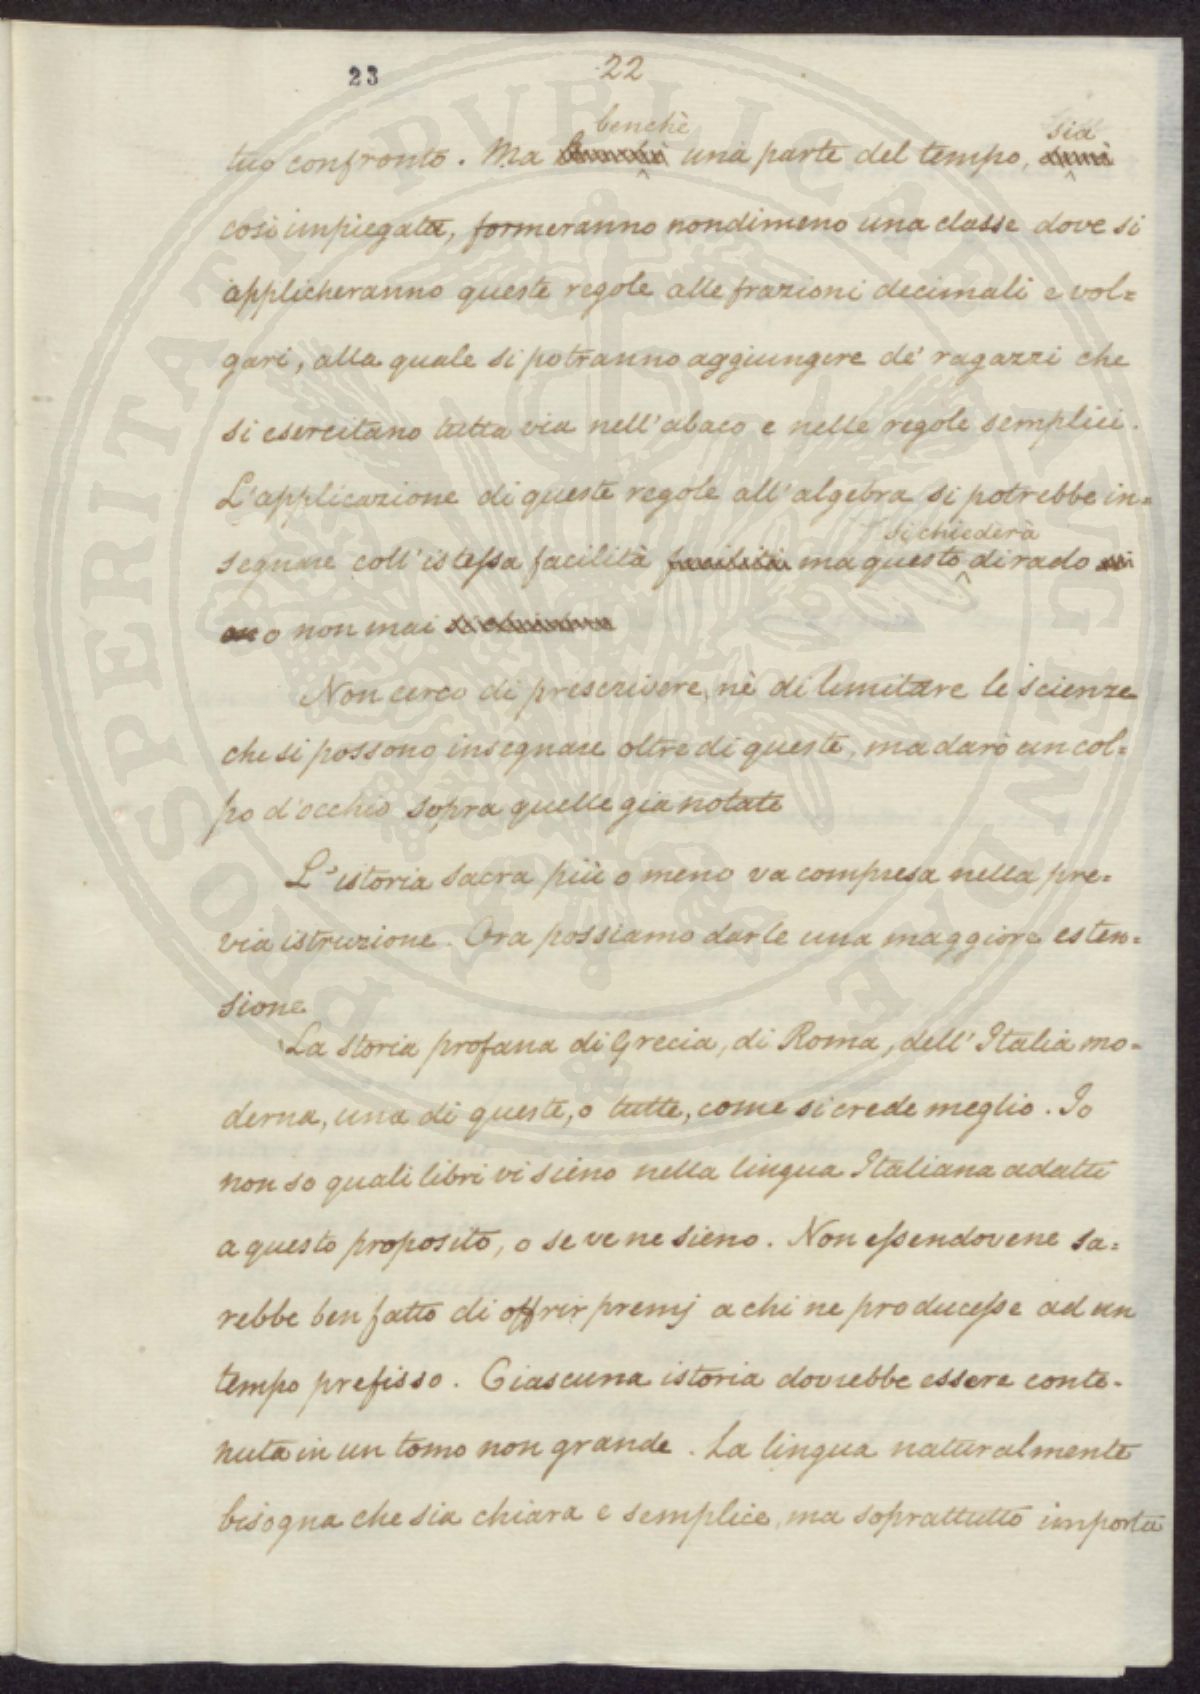 23 22
benchè sia
tuo confronto. Ma una parte del tempo,
così impiegata, formeranno nondimeno una classe dove si
applicheranno queste regole alle frazioni decimali e vol=
gari, alla quale si potranno aggiungere de' ragazzi che
si esercitano tutta via nell'abaco e nelle regole semplici.
L'applicazione di queste regole all'algebra si potrebbe in=
si chiederà
segnare coll'istessa facilità facilità ma questo di rado
o non mai
Non cerco di prescrivere, nè di limitare le scienze
che si possono insegnare oltre di queste, ma darò un col=
po d'occhio sopra quelle gia notate
L'istoria sacra più o meno va compresa nella pre=
via istruzione. Ora possiamo darle una maggiore esten=
sione.
La storia profana di Grecia, di Roma, dell'Italia mo=
derna, una di queste, o tutte, come si crede meglio. Io
non so quali libri vi sieno nella lingua Italiana adatti
a questo proposito, o se ve ne sieno. Non essendovene sa=
rebbe ben fatto di offrir premj a chi ne producesse ad un
tempo prefisso. Ciascuna istoria dovrebbe essere conte=
nuta in un tomo non grande. La lingua naturalmente
bisogna che sia chiara e semplice, ma soprattutto importa
PROSPERITATI PVBLICAE AVGENDAE